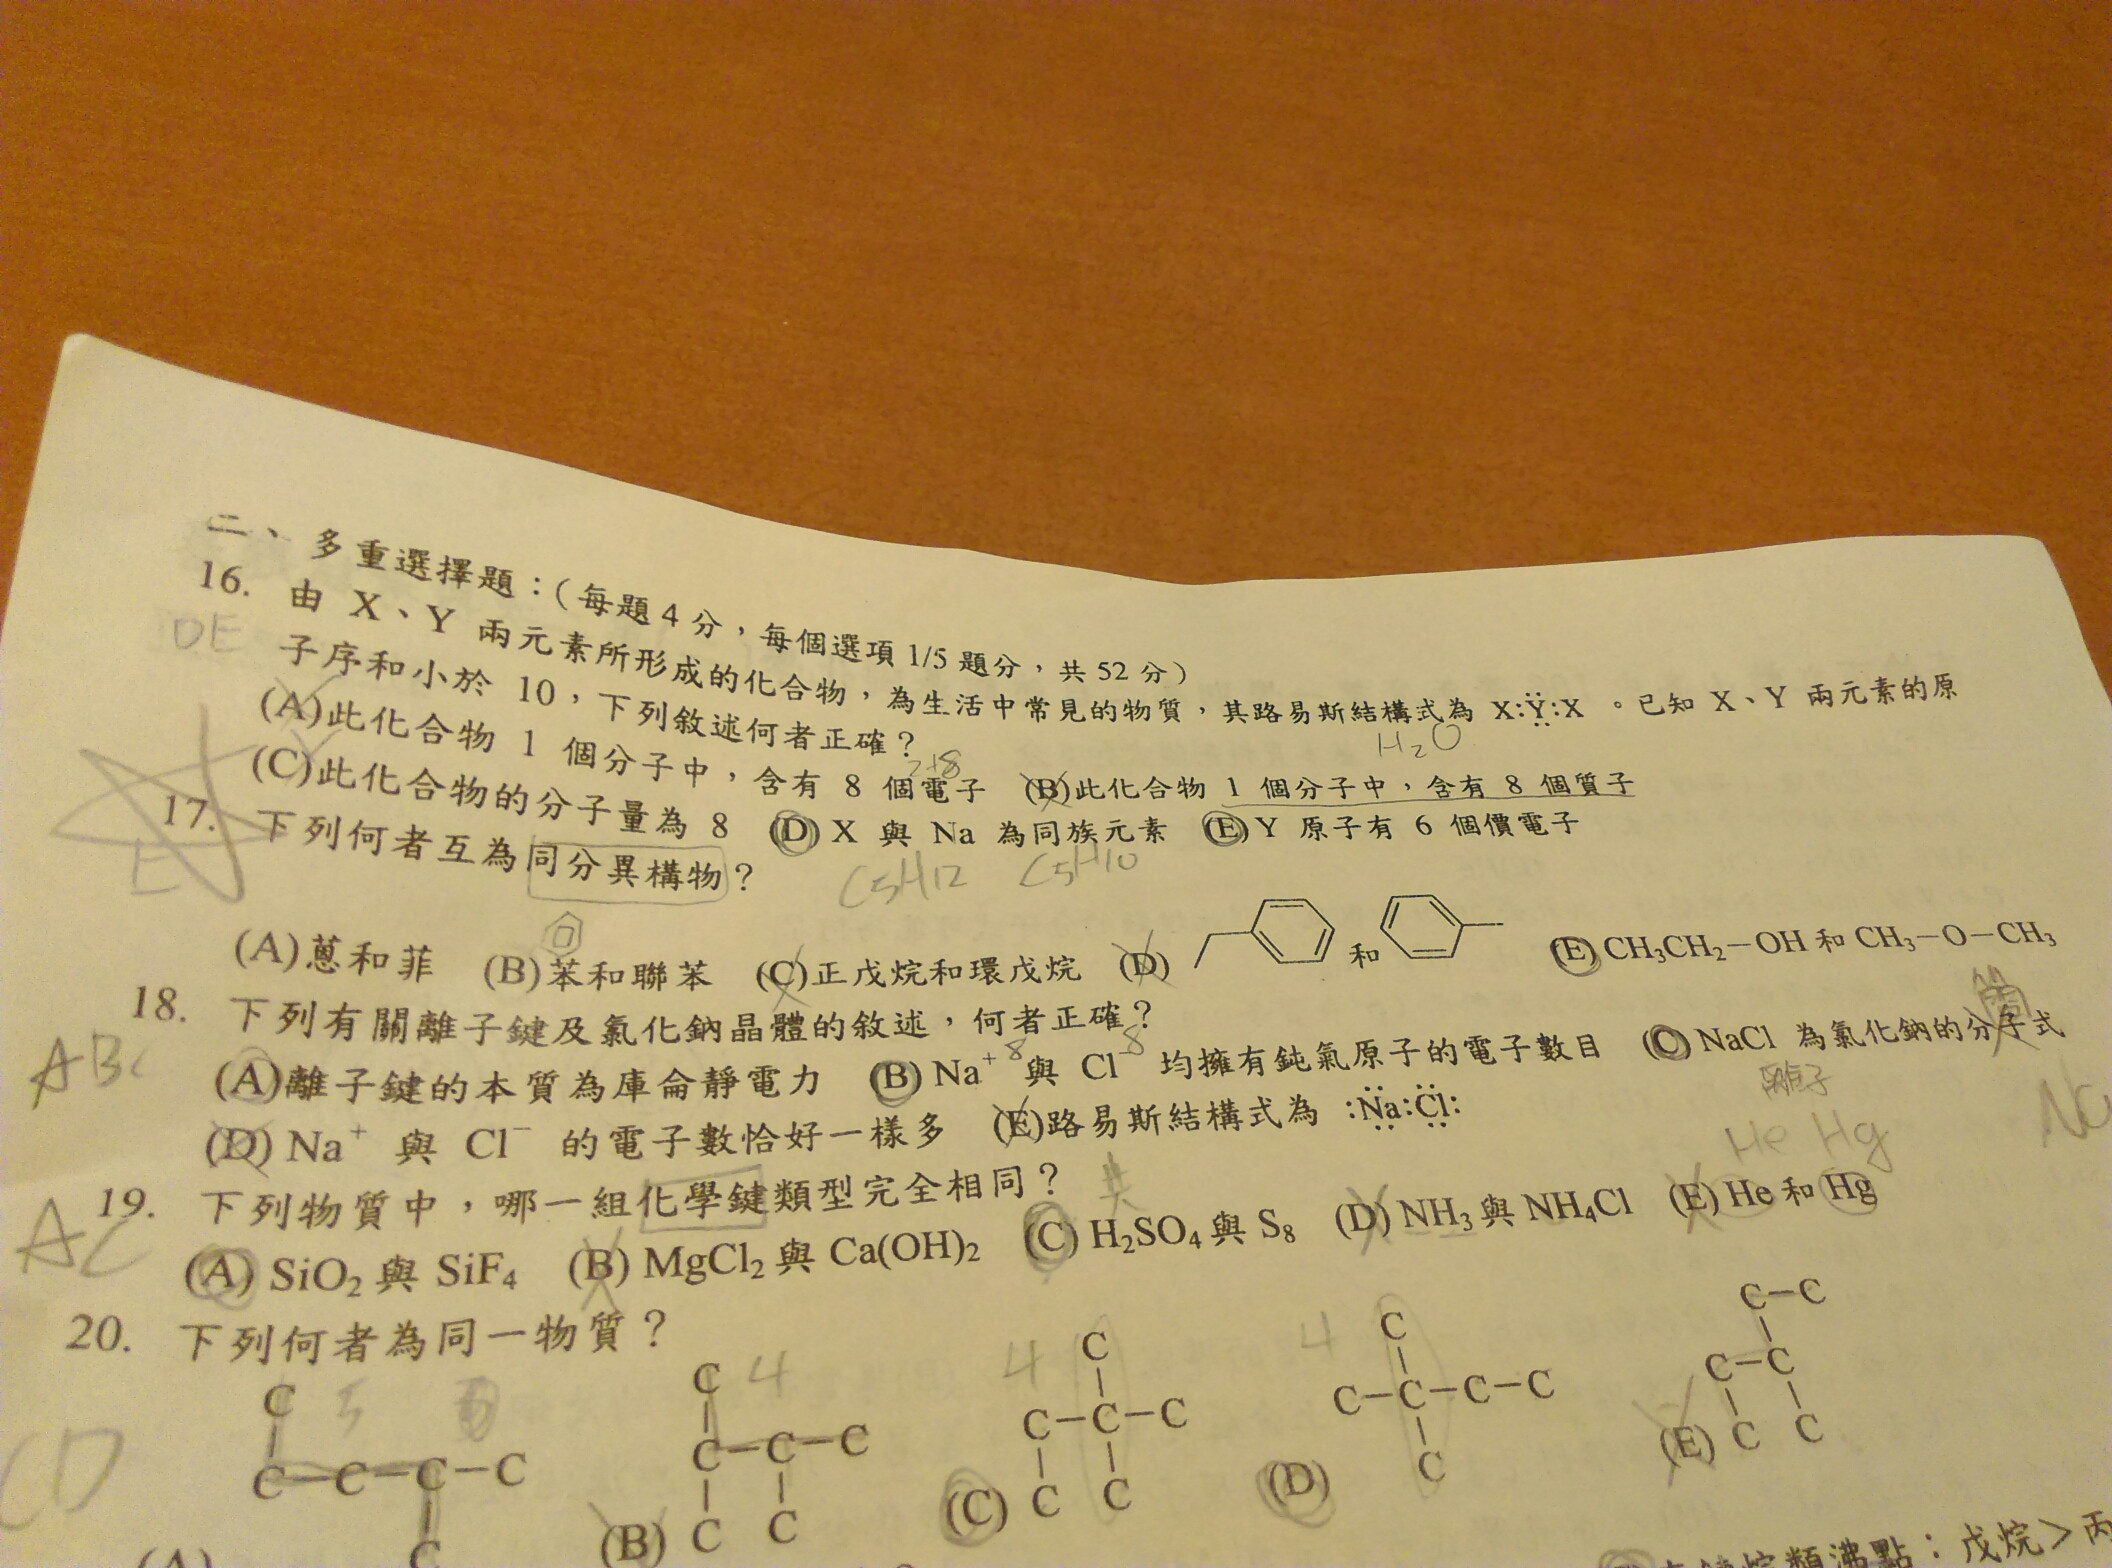 二、多重選擇題：(每題4分，每個選項1/5題分，共52分)
16. 由 X、Y 兩元素所形成的化合物，為生活中常見的物質，其路易斯結構式為 X:Y:X 。已知 X、Y 兩元素的原
DE
子序和小於 10，下列敘述何者正確？
H₂O
2+8
(A)此化合物 1 個分子中，含有 8 個電子 (B)此化合物 1 個分子中，含有 8 個質子
(C)此化合物的分子量為 8 (D) X 與 Na 為同族元素 (E) Y 原子有 6 個價電子
17. 下列何者互為同分異構物？
E
C5H12 C5H10
(A)蒽和菲 (B)苯和聯苯 (C)正戊烷和環戊烷 (D) 和 (E) CH₃CH₂－OH 和 CH₃－O－CH₃
18. 下列有關離子鍵及氯化鈉晶體的敘述，何者正確？
ABC
8 8
(A)離子鍵的本質為庫侖靜電力 (B) Na⁺ 與 Cl⁻ 均擁有鈍氣原子的電子數目 (C) NaCl 為氯化鈉的分子式
離子
(D) Na⁺ 與 Cl⁻ 的電子數恰好一樣多 (E)路易斯結構式為 :Na:Cl:
He Hg
19. 下列物質中，哪一組化學鍵類型完全相同？
共
AC
(A) SiO₂ 與 SiF₄ (B) MgCl₂ 與 Ca(OH)₂ (C) H₂SO₄ 與 S₈ (D) NH₃ 與 NH₄Cl (E) He 和 Hg
20. 下列何者為同一物質？
CD
5 4 4 4
C C C C C－C
C－C－C－C C－C－C C－C－C C－C－C－C C－C
C C C C C C C C
(A) (B) (C) (D) (E)
烷類沸點：戊烷＞丙